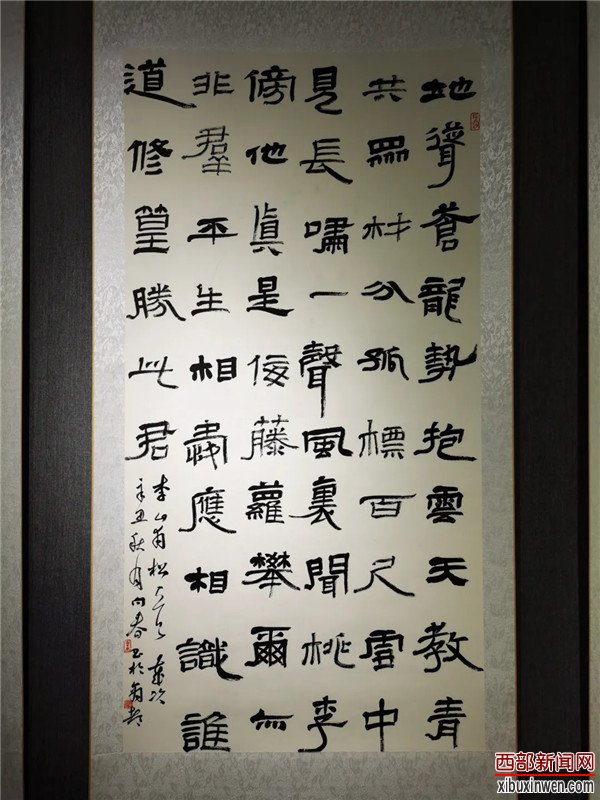 地聳蒼龍勢抱雲天教青
共眾材分孤標百尺雪中
見長嘯一聲風裏聞桃李
傍他眞是佞藤蘿攀爾無
非羣平生相愛應相識誰
道修篁勝此君
李山甫松
辛丑秋月向春
西部新闻网
xibuxinwen.com